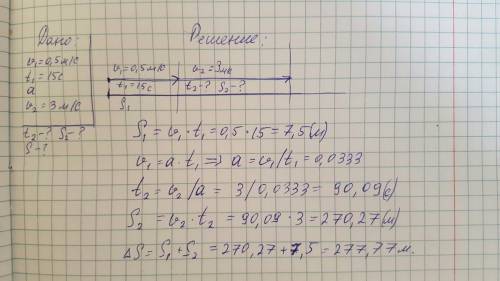 Дано:
v₁=0,5 м/с
t₁=15с
a
v₂=3 м/с
t₂-? S₂-?
S-?
Решение:
v₁=0,5м/с v₂=3м/с
t₁=15с t₂-? S₂-?
S₁
S₁ = v₁·t₁=0,5·15=7,5(м)
v₁=a·t₁ => a=v₁/t₁=0,0333
t₂=v₂/a = 3/0,0333= 90,09(с)
S₂=v₂·t₂ = 90,09·3=270,27(м)
ΔS=S₁+S₂ =270,27+7,5=277,77м.